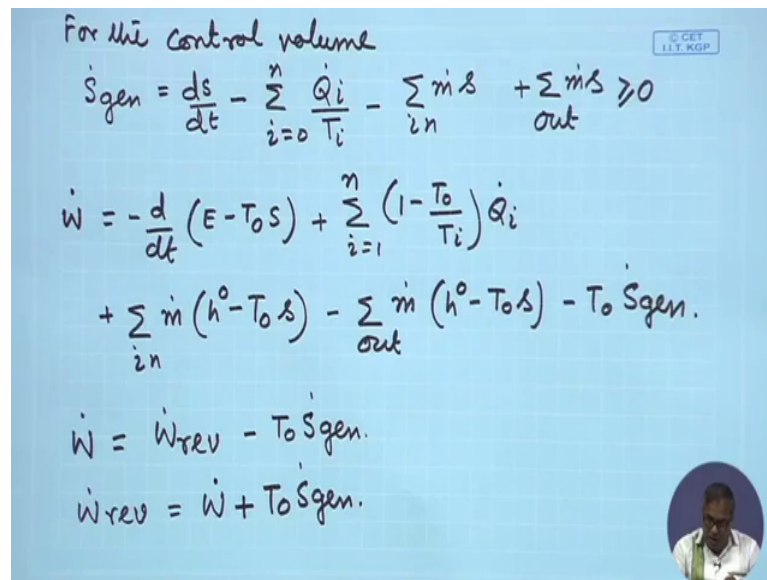 For the control volume
© CET
I.I.T. KGP
Ṡgen = ds/dt - Σ_{i=0}^{n} Q̇i/Ti - Σ_{in} ṁs + Σ_{out} ṁs ≥ 0
Ẇ = -d/dt (E - T₀S) + Σ_{i=1}^{n} (1 - T₀/Ti) Q̇i
+ Σ_{in} ṁ (h⁰ - T₀s) - Σ_{out} ṁ (h⁰ - T₀s) - T₀ Ṡgen.
Ẇ = Ẇrev - T₀ Ṡgen.
Ẇrev = Ẇ + T₀ Ṡgen.